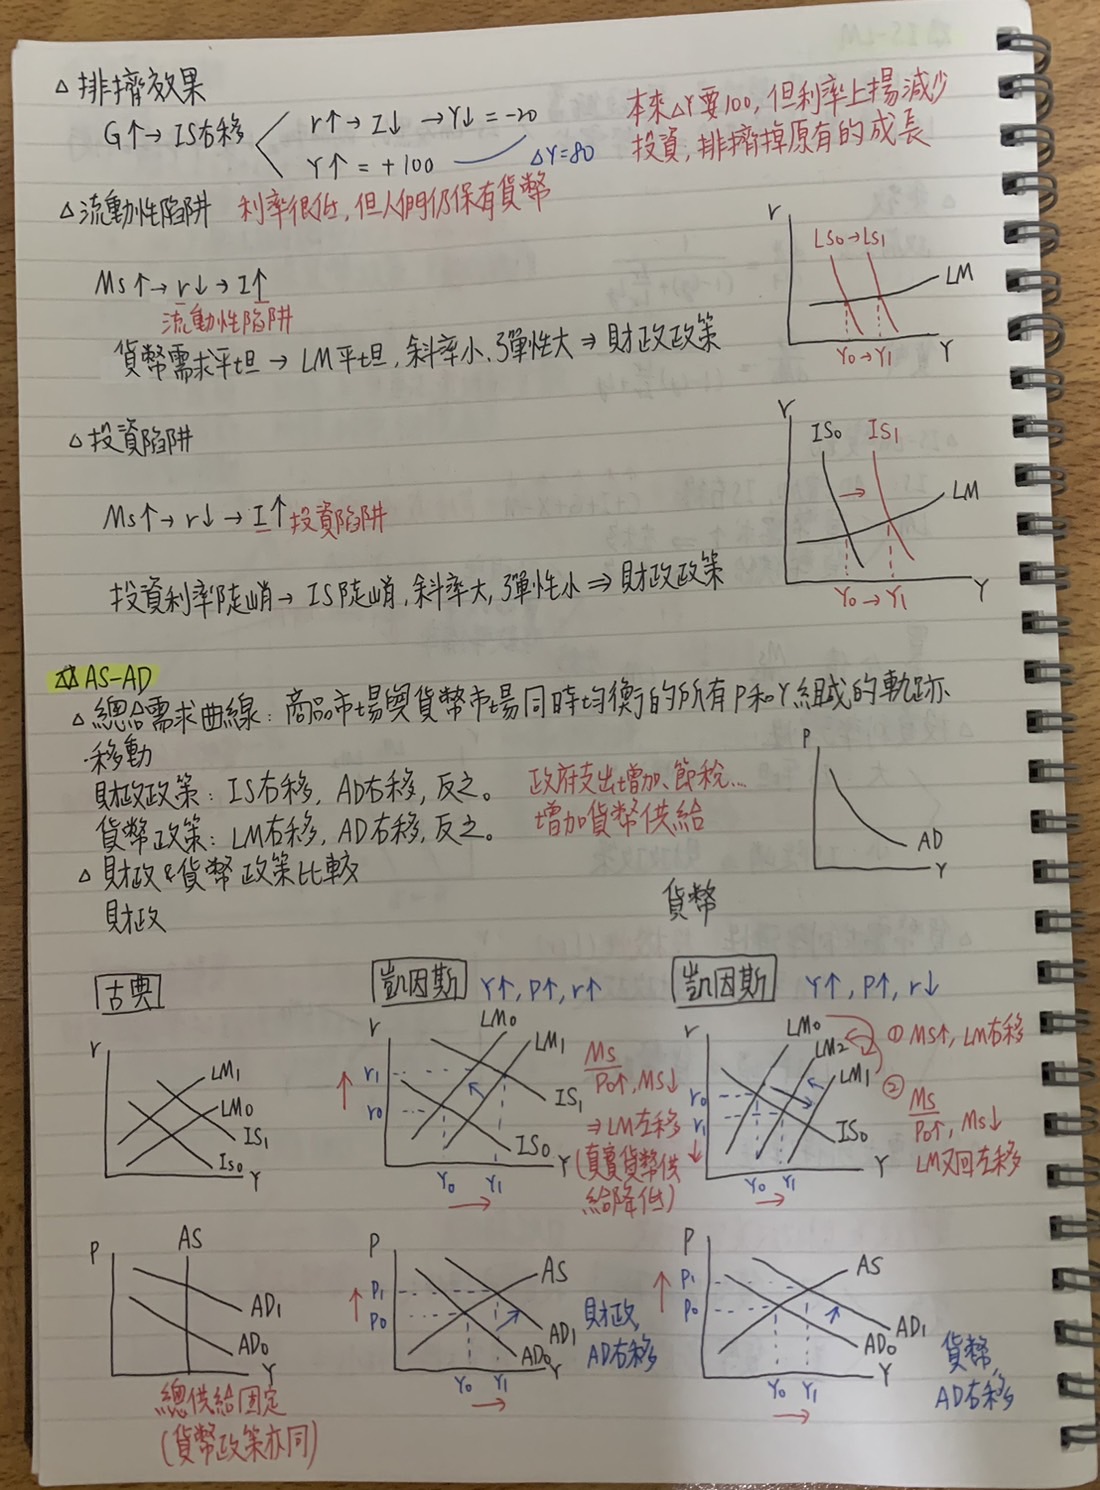 △ 排擠效果
G↑→ IS右移
r↑→ I↓ → Y↓ = -20
Y↑ = +100
△Y=80
本來△Y要100, 但利率上揚減少
投資, 排擠掉原有的成長
△ 流動性陷阱 利率很低, 但人們仍保有貨幣
Ms↑→ r↓ → I↑
流動性陷阱
貨幣需求平坦 → LM平坦, 斜率小、彈性大 ⇒ 財政政策
r
LS₀→LS₁
LM
Y₀→Y₁
Y
△ 投資陷阱
Ms↑→ r↓ → I↑ 投資陷阱
投資利率陡峭 → IS陡峭, 斜率大, 彈性小 ⇒ 財政政策
r
IS₀ IS₁
→
LM
Y₀→Y₁
Y
AS-AD
△ 總給需求曲線: 商品市場與貨幣市場同時均衡的所有P和Y組成的軌跡
·移動
財政政策: IS右移, AD右移, 反之。
政府支出增加、節稅...
貨幣政策: LM右移, AD右移, 反之。
增加貨幣供給
P
AD
Y
△ 財政&貨幣政策比較
財政
貨幣
古典
r
LM₁
LM₀
IS₁
IS₀
Y
凱因斯 Y↑, P↑, r↑
r
LM₀
LM₁
r₁
r₀
IS₁
IS₀
Y
Y₀ Y₁
→
Ms
P₀↑, Ms↓
⇒ LM左移
(真實貨幣供
給降低)
凱因斯 Y↑, P↑, r↓
r
LM₀
LM₂
LM₁
r₀
r₁
IS₀
Y
Y₀ Y₁
→
① Ms↑, LM右移
②
Ms
P₀↑, Ms↓
LM又回左移
P
AS
AD₁
AD₀
Y
總供給固定
(貨幣政策亦同)
P
AS
P₁
P₀
AD₁
AD₀
Y
Y₀ Y₁
→
財政,
AD右移
P
AS
P₁
P₀
AD₁
AD₀
Y
Y₀ Y₁
→
貨幣,
AD右移